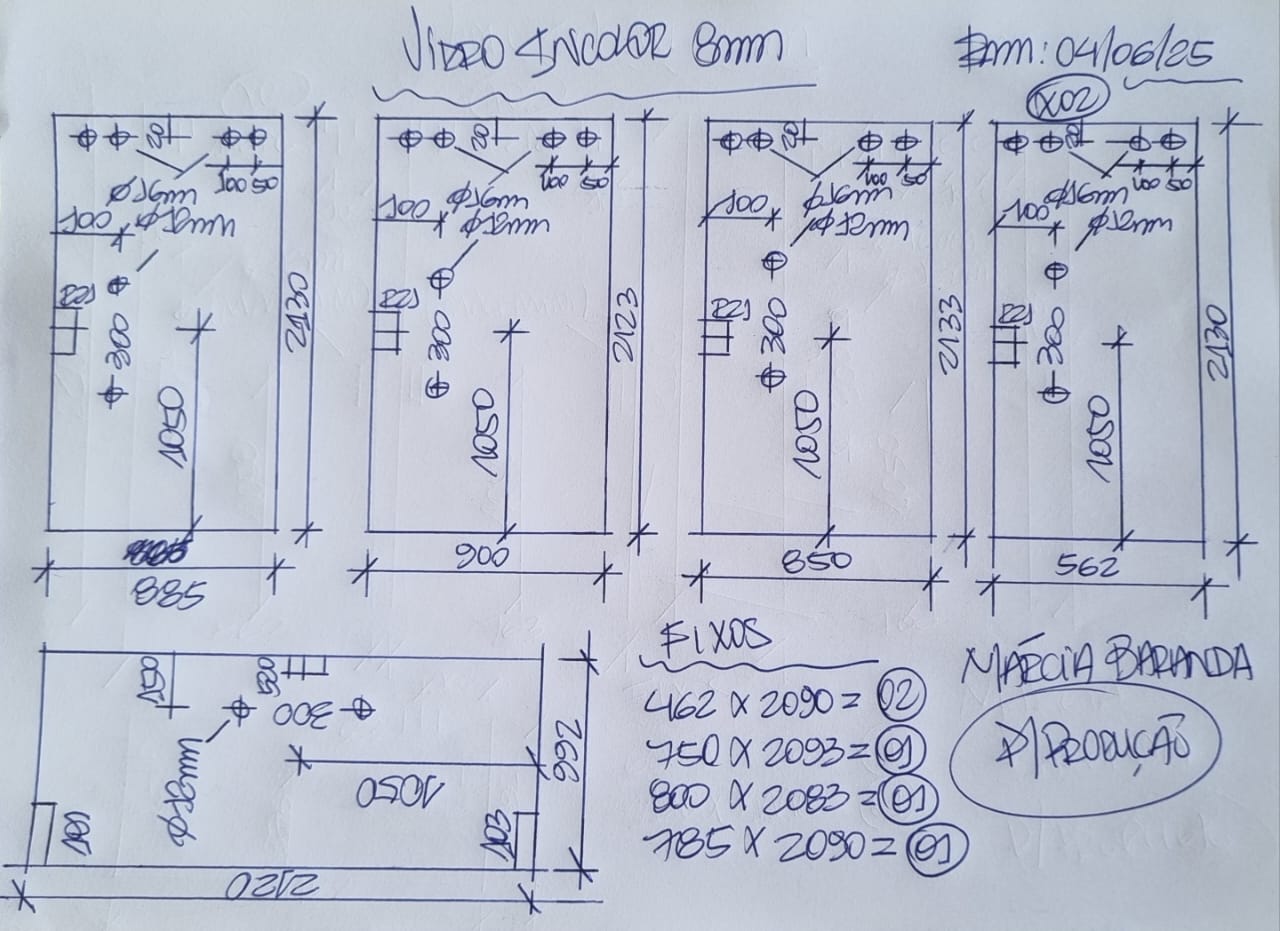 VIDRO INCOLOR 8mm
Em: 04/06/25
X02
Ø16mm
100 50
100
Ø12mm
300
1050
2130
885
Ø16mm
100 50
100
Ø12mm
300
1050
2123
900
Ø16mm
100 50
100
Ø12mm
300
1050
2133
850
Ø16mm
100 50
100
Ø12mm
300
1050
2130
562
300
Ø12mm
1050
2120
FIXOS
462 X 2090 = 02
750 X 2093 = 01
800 X 2083 = 01
785 X 2090 = 01
MÁRCIA BARANDA
P/PRODUÇÃO